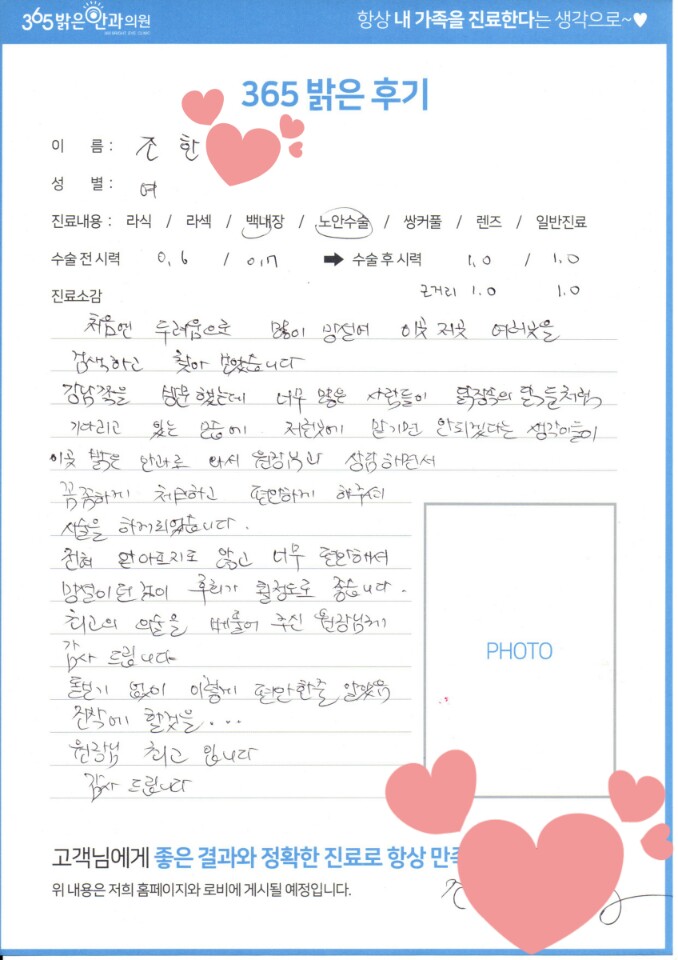 365밝은안과의원
365 BRIGHT EYE CLINIC
항상 내 가족을 진료한다는 생각으로~♥
365 밝은 후기
이 름 : 조 한
성 별 : 여
진료내용 : 라식 / 라섹 / 백내장 / 노안수술 / 쌍커풀 / 렌즈 / 일반진료
수술 전 시력 0.6 / 0.7 ➡ 수술 후 시력 1.0 / 1.0
진료소감 근거리 1.0 1.0
처음엔 두려움으로 많이 망설여 이곳 저곳 여러곳을
검색하고 찾아 보았습니다
강남쪽을 방문했는데 너무 많은 사람들이 닭장속의 닭들처럼
기다리고 있는 모습에 저런곳에 맡기면 안되겠다는 생각이들어
이곳 밝은 안과로 와서 원장님과 상담하면서
꼼꼼하게 체크하고 편안하게 해주셔
시술을 하게되었습니다.
전혀 안아프지도 않고 너무 편안해서
망설이던 것이 후회가 될정도로 좋습니다.
최고의 의술을 베풀어 주신 원장님께
감사 드립니다
돋보기 없이 이렇게 편안한줄 알았음
진작에 할것을...
원장님 최고 입니다
감사 드립니다
PHOTO
고객님에게 좋은 결과와 정확한 진료로 항상 만족
위 내용은 저희 홈페이지와 로비에 게시될 예정입니다.
조